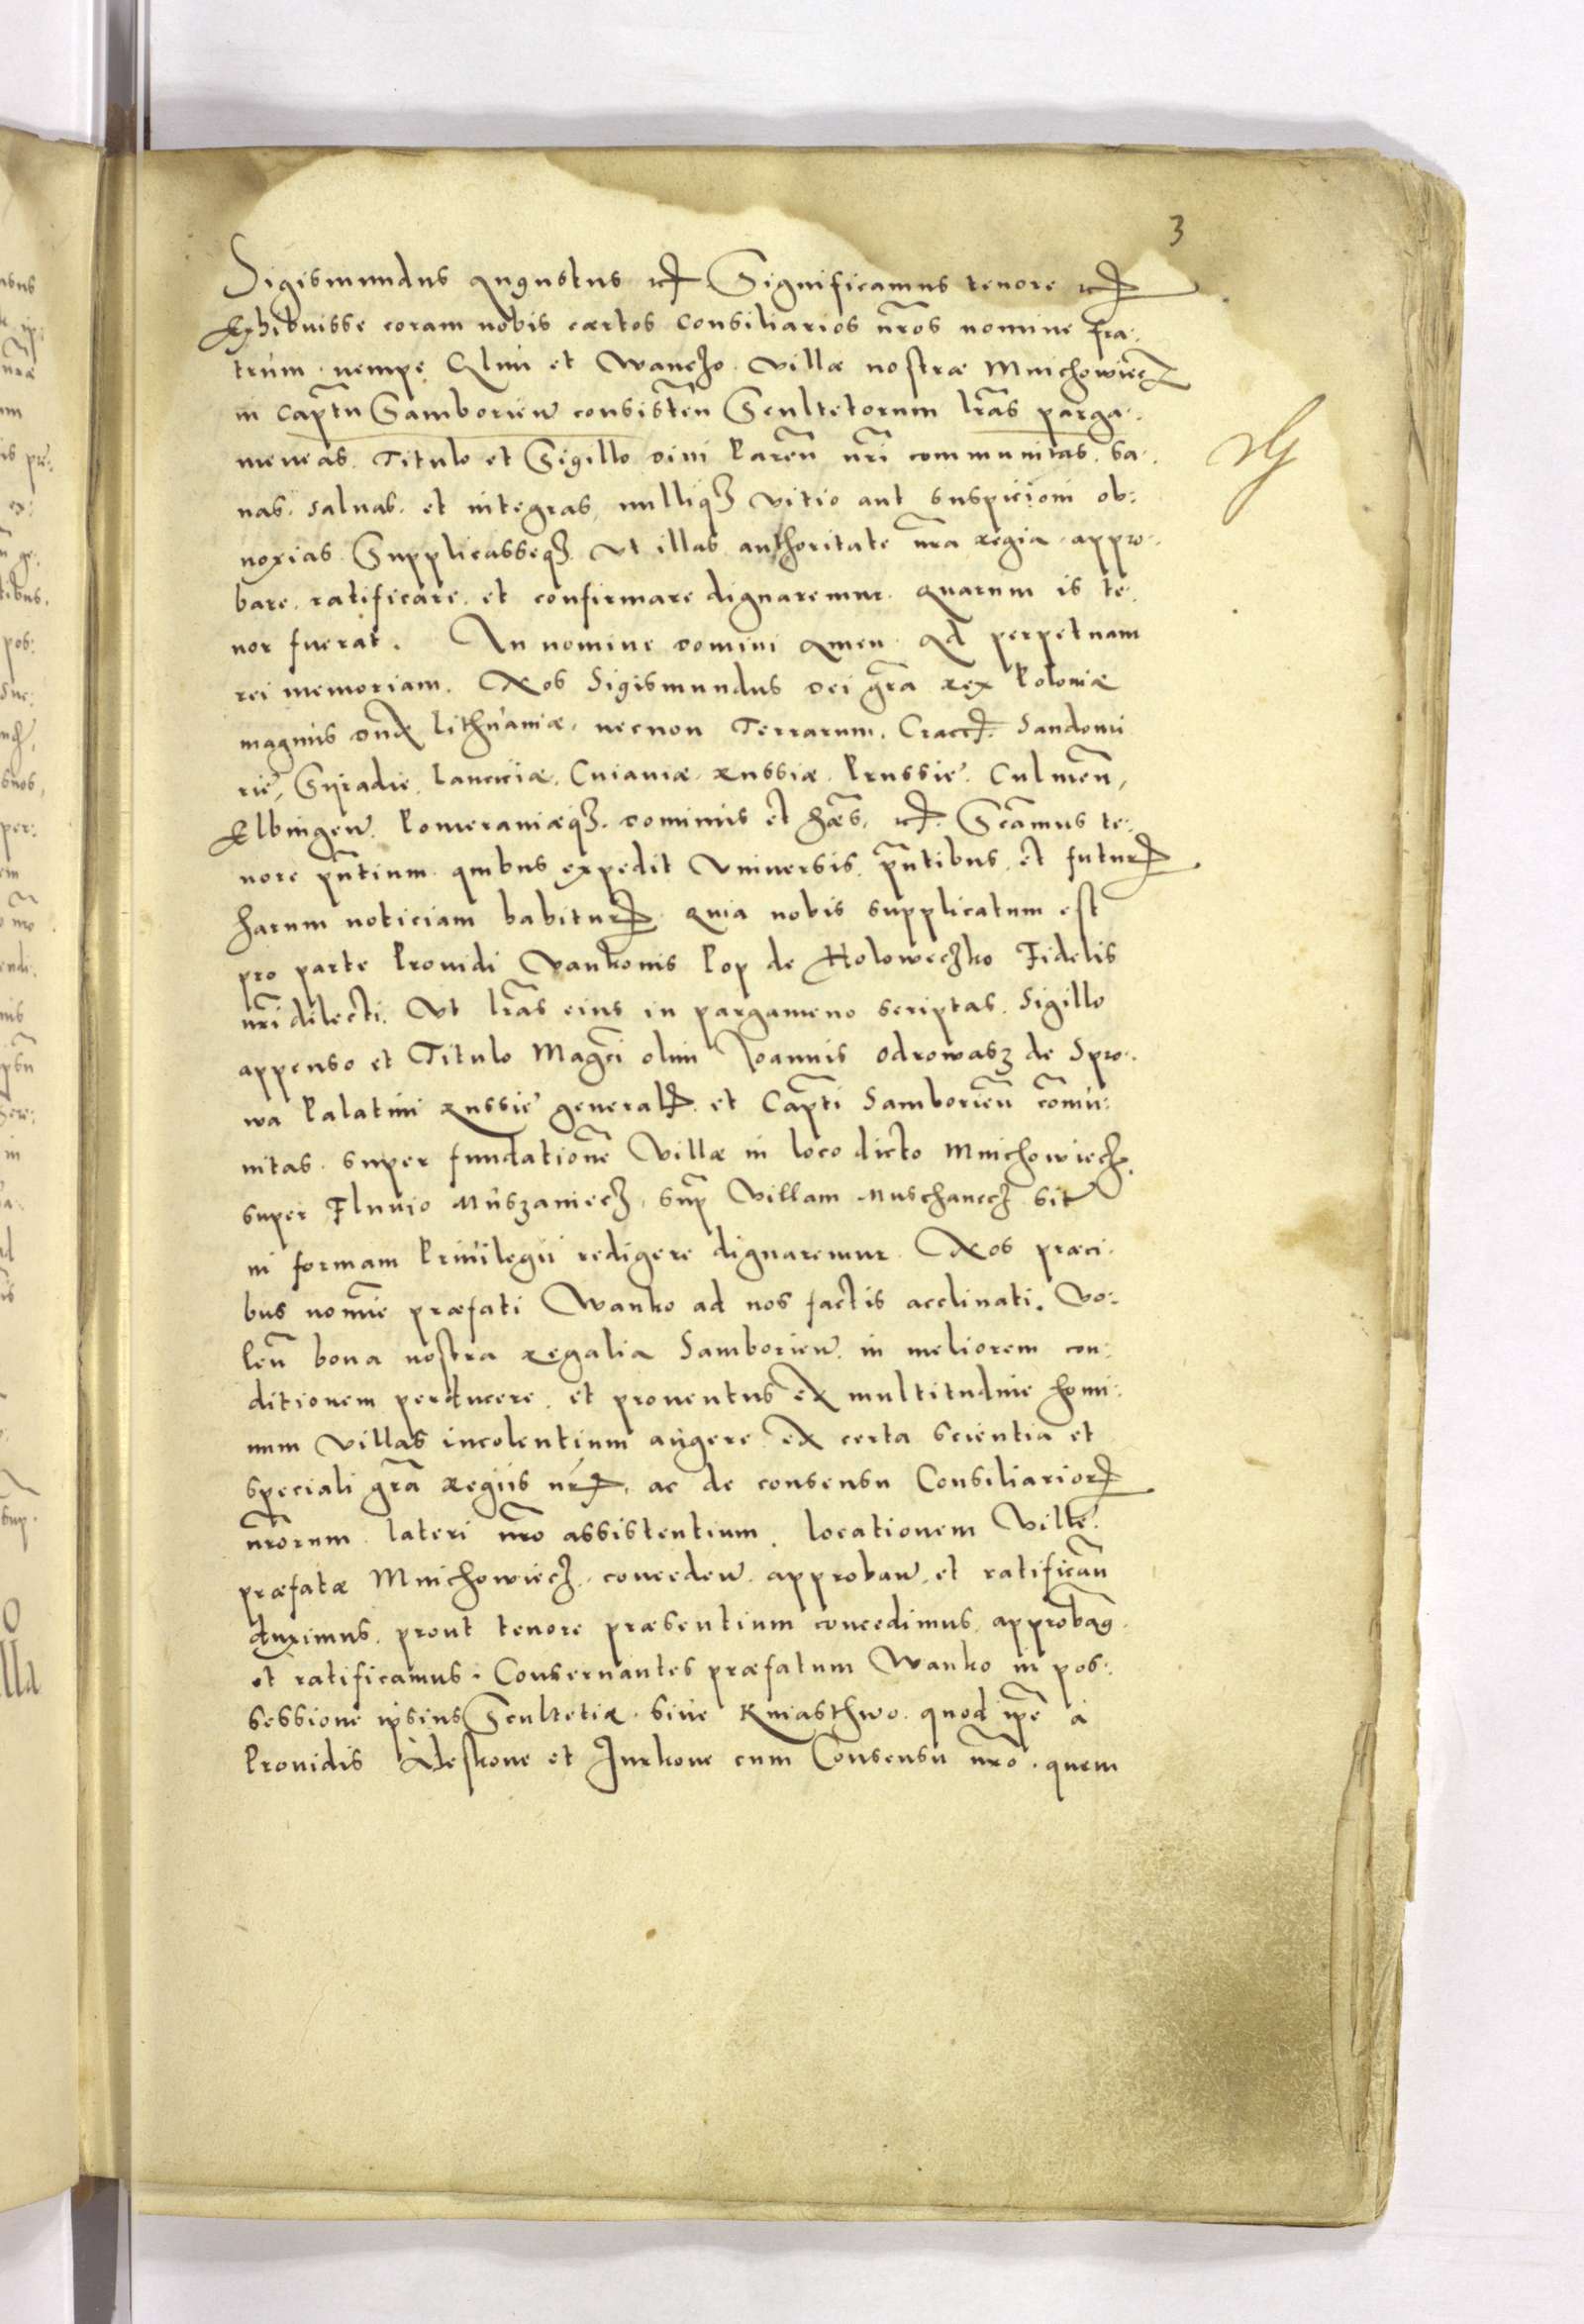 3
Sigismundus Augustus etc Significamus tenore etc
Exhibuisse coram nobis certos Consiliarios nr̃os nomine fra:
trum nempe et Waneczo villæ nostræ Mnichowiecz
in Cap̃tu Samborien̄ consisten̄ Scultetorum lr̃as parga:
meneas Titulo et Sigillo divi Paren̄ nr̃i communitas, sa:
nas, salvas, et integras, nulliq3 vitio aut suspicioni ob:
noxias Supplicasseq3 ut illas authoritate nr̃a regia appro:
bare, ratificare, et confirmare dignaremur. Quarum is te:
nor fuerat. In nomine domini Amen Ad perpetuam
rei memoriam. Nos Sigismundus dei gr̃a rex Poloniæ
magnus dux Lithuaniæ, necnon Terrarum, Cracc̄, Sandomi
rię, Syradię, Lanciciæ, Cuiaviæ, Russiæ, Prussię, Culmen̄,
Elbingen̄, Pomeraniæq3 dominus et hæs, etc. Sc̃amus te:
nore pn̄tium quibus expedit Universis, pn̄tibus, et futur̄
harum noticiam habitur̄ Quia nobis supplicatum est
pro parte Providi Vankonis Pop de Holoweczko Fidelis
nr̃i dilecti, Ut lr̃as eius in pargameno scriptas, Sigillo
appenso et Titulo Mag̃ci olim Joannis Odrowasz de Spro:
wa Palatini Russię general̄ et Cap̃ti Samborien̄ com̄u:
nitas, super fundatione Villæ in loco dicto Mnichowiecz,
super Fluvio Muszaniecz, sup̃ Villam Muschanecz sit̄
in formam Privilegii redigere dignaremur. Nos præci:
bus nom̄ie præfati Wanko ad nos factis acclinati, Vo:
len̄ bona nostra regalia Samborien̄ in meliorem con:
ditionem perducere, et proventus ex multitudine homi:
num villas incolentium augere ex certa scientia et
speciali gr̃a regiis nr̄, ac de consensu Consiliarior̄
nr̃orum lateri nr̃o assistentium, locationem Villę
præfatæ Mnichowiecz, conceden̄ approban̄ et ratifican̄
duximus, prout tenore præsentium concedimus, approbam9
et ratificamus. Conservantes præfatum Wanko in pos:
sessione ipsius Scultetiæ sive Kniasthwo quod ip̃e a
Providis et Jurkone cum Consensu nr̃o, quem